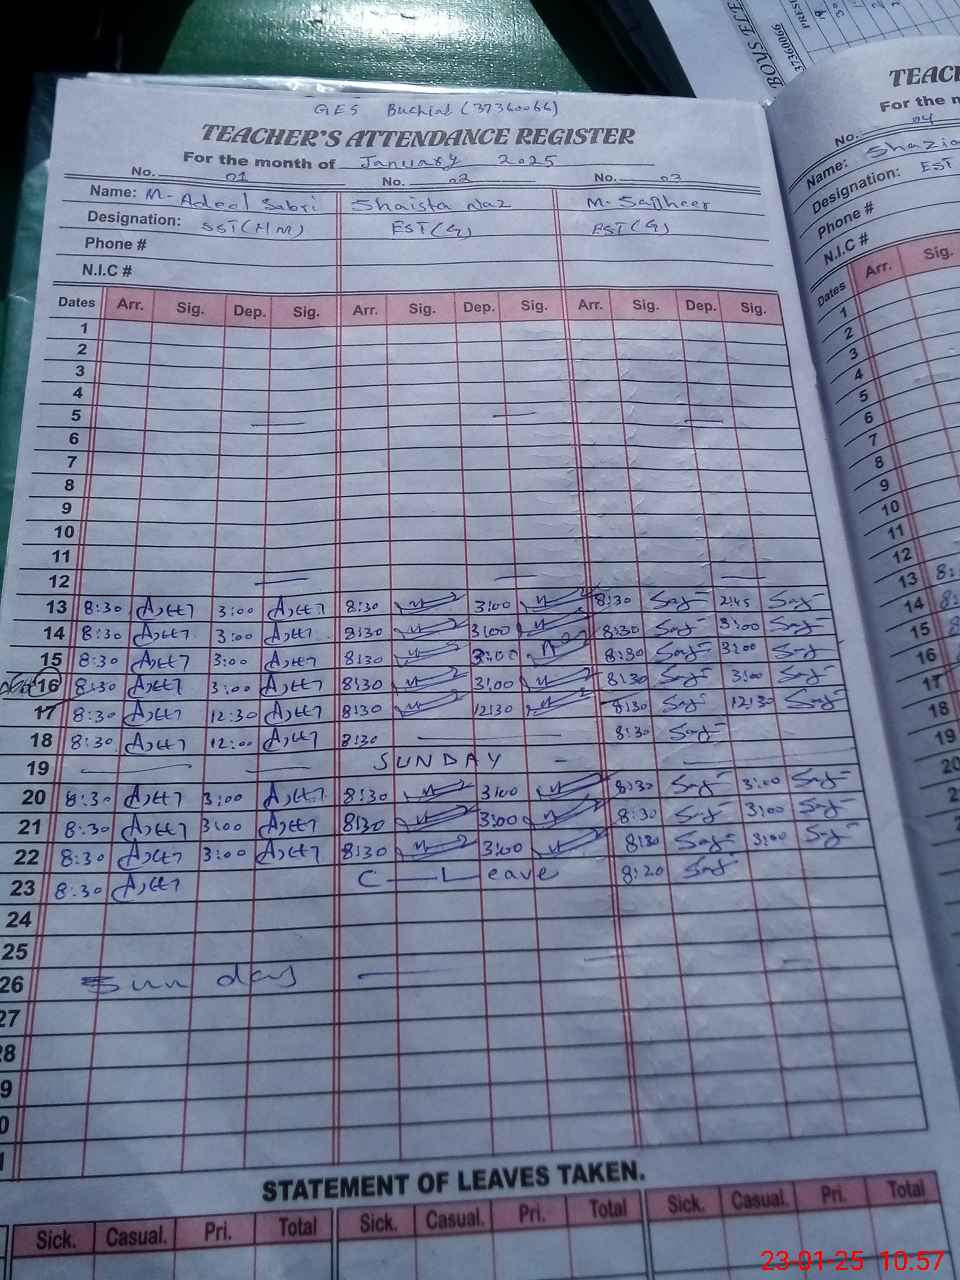 GES Buchial (37360066)
TEACHER'S ATTENDANCE REGISTER
For the month of January 2025
No. 01 No. 02 No. 03
Name: M. Adeel Sabri Shaista Naz M. Sagheer
Designation: SST(HM) EST(G) EST(G)
Phone #
N.I.C #
Dates Arr. Sig. Dep. Sig. Arr. Sig. Dep. Sig. Arr. Sig. Dep. Sig.
1
2
3
4
5
6
7
8
9
10
11
12
13 8:30 3:00 8:30 3:00 8:30 2:45
14 8:30 3:00 8:30 3:00 8:30 3:00
15 8:30 3:00 8:30 3:00 8:30 3:00
16 8:30 3:00 8:30 3:00 8:30 3:00
17 8:30 12:30 8:30 12:30 8:30 12:30
18 8:30 12:00 8:30 8:30
19 SUNDAY
20 8:30 3:00 8:30 3:00 8:30 3:00
21 8:30 3:00 8:30 3:00 8:30 3:00
22 8:30 3:00 8:30 3:00 8:30 3:00
23 8:30 C Leave 8:20
24
25
26 Sunday
27
28
9
0
1
STATEMENT OF LEAVES TAKEN.
Sick. Casual. Pri. Total Sick. Casual. Pri. Total Sick. Casual. Pri. Total
BOYS ELE
37360066
PRESE
TEAC
For the m
No. 04
Name: Shazia
Designation: EST
Phone #
N.I.C #
Dates Arr. Sig.
1
2
3
4
5
6
7
8
9
10
11
12
13 8:
14 8:
15 8:
16
17
18
19
20
23-01-25 10.57